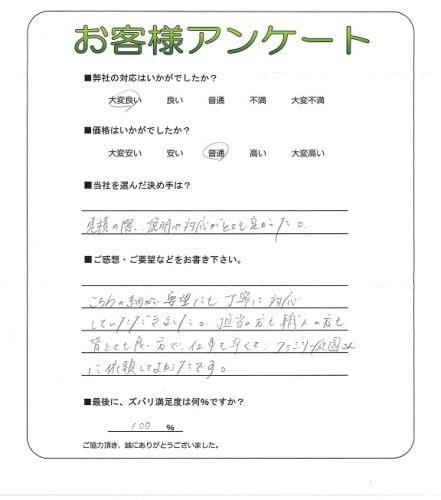 お客様アンケート
■弊社の対応はいかがでしたか？
大変良い 良い 普通 不満 大変不満
■価格はいかがでしたか？
大変安い 安い 普通 高い 大変高い
■当社を選んだ決め手は？
見積の際、説明や対応がとても良かった。
■ご感想・ご要望などをお書き下さい。
こちらの細かい要望にも丁寧に対応
していただきました。担当の方も職人の方も
皆とても良い方で、仕事も早くて、ファミリー庭園さん
に依頼してよかったです。
■最後に、ズバリ満足度は何%ですか？
100 %
ご協力頂き、誠にありがとうございました。